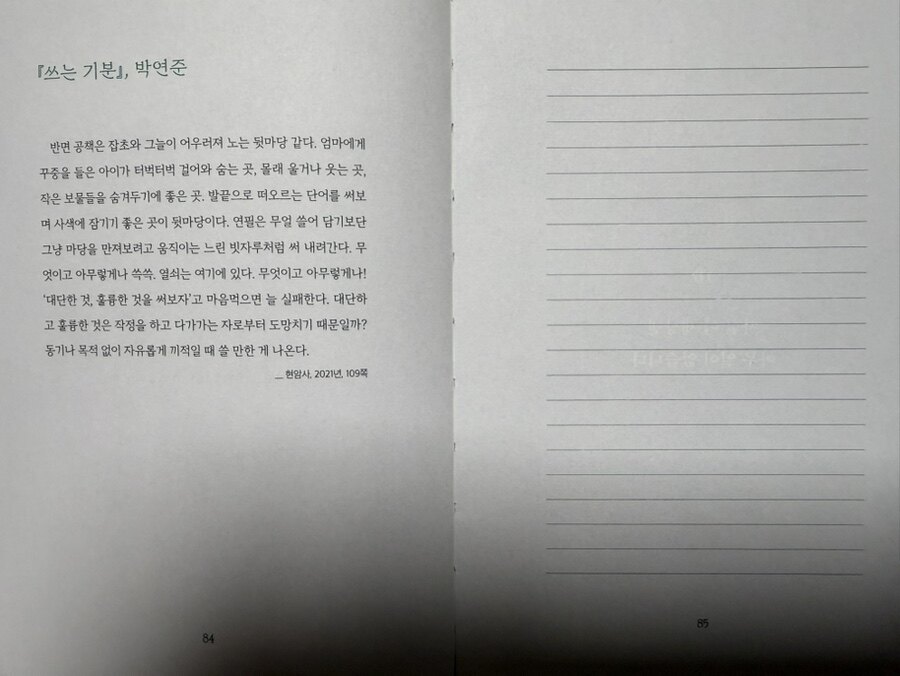 『쓰는 기분』, 박연준
반면 공책은 잡초와 그늘이 어우러져 노는 뒷마당 같다. 엄마에게
꾸중을 들은 아이가 터벅터벅 걸어와 숨는 곳, 몰래 울거나 웃는 곳,
작은 보물들을 숨겨두기에 좋은 곳. 발끝으로 떠오르는 단어를 써보
며 사색에 잠기기 좋은 곳이 뒷마당이다. 연필은 무얼 쓸어 담기보단
그냥 마당을 만져보려고 움직이는 느린 빗자루처럼 써 내려간다. 무
엇이고 아무렇게나 쓱쓱. 열쇠는 여기에 있다. 무엇이고 아무렇게나!
‘대단한 것, 훌륭한 것을 써보자’고 마음먹으면 늘 실패한다. 대단하
고 훌륭한 것은 작정을 하고 다가가는 자로부터 도망치기 때문일까?
동기나 목적 없이 자유롭게 끼적일 때 쓸 만한 게 나온다.
__ 현암사, 2021년, 109쪽
84
85